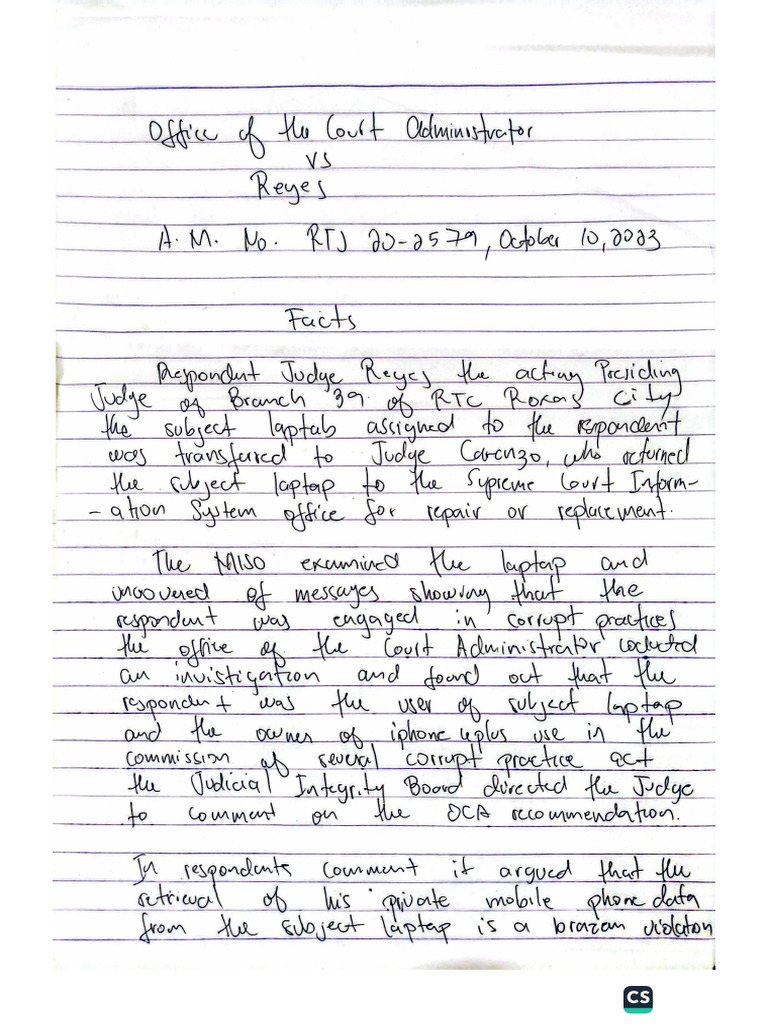 Office of the Court Administrator
vs
Reyes
A.M. No. RTJ 20-2579, October 10, 2023
Facts
Respondent Judge Reyes the acting Presiding
Judge of Branch 39 of RTC Roxas City
the subject laptab assigned to the respondent
was transferred to Judge Caranzo, who returned
the subject laptap to the Supreme Court Inform-
-ation System office for repair or replacement.
The MISO examined the laptap and
uncovered of messages showing that the
respondent was engaged in corrupt practices
the office of the Court Administrator coducted
an invistigation and found out that the
respondent was the user of subject laptap
and the owner of iphone 6plus use in the
commission of several corrupt practice act
the Judicial Integrity Board directed the Judge
to comment on the OCA recommendation.
In respondents comment it argued that the
retrieval of his private mobile phone data
from the subject laptap is a brazan violaton
CS